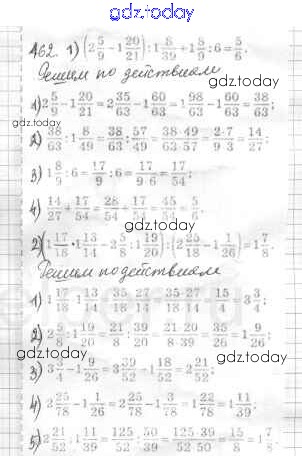 gdz.today
462. 1) (2 5/9 - 1 20/21) : 1 8/39 + 1 8/9 : 6 = 5/6.
Решим по действиям
gdz.today
1) 2 5/9 - 1 20/21 = 2 35/63 - 1 60/63 = 1 98/63 - 1 60/63 = 38/63;
2) 38/63 : 1 8/49 = 38/63 : 57/49 = 38·49/63·57 = 2·7/9·3 = 14/27;
3) 1 8/9 : 6 = 17/9 : 6 = 17/9·6 = 17/54;
gdz.today
4) 14/27 + 17/54 = 28/54 + 17/54 = 45/54 = 5/6.
2) (1 17/18 · 1 13/14 - 2 5/8 : 1 19/20) : (2 25/78 - 1 1/26) = 1 7/8.
Решим по действиям
gdz.today
1) 1 17/18 · 1 13/14 = 35/18 · 27/14 = 35·27/18·14 = 15/4 = 3 3/4;
2) 2 5/8 : 1 19/20 = 21/8 : 39/20 = 21·20/8·39 = 35/26 = 1 9/26;
gdz.today
3) 3 3/4 - 1 9/26 = 3 39/52 - 1 18/52 = 2 21/52;
4) 2 25/78 - 1 1/26 = 2 25/78 - 1 3/78 = 1 22/78 = 1 11/39;
gdz.today
5) 2 21/52 : 1 11/39 = 125/52 : 50/39 = 125·39/52·50 = 15/8 = 1 7/8.